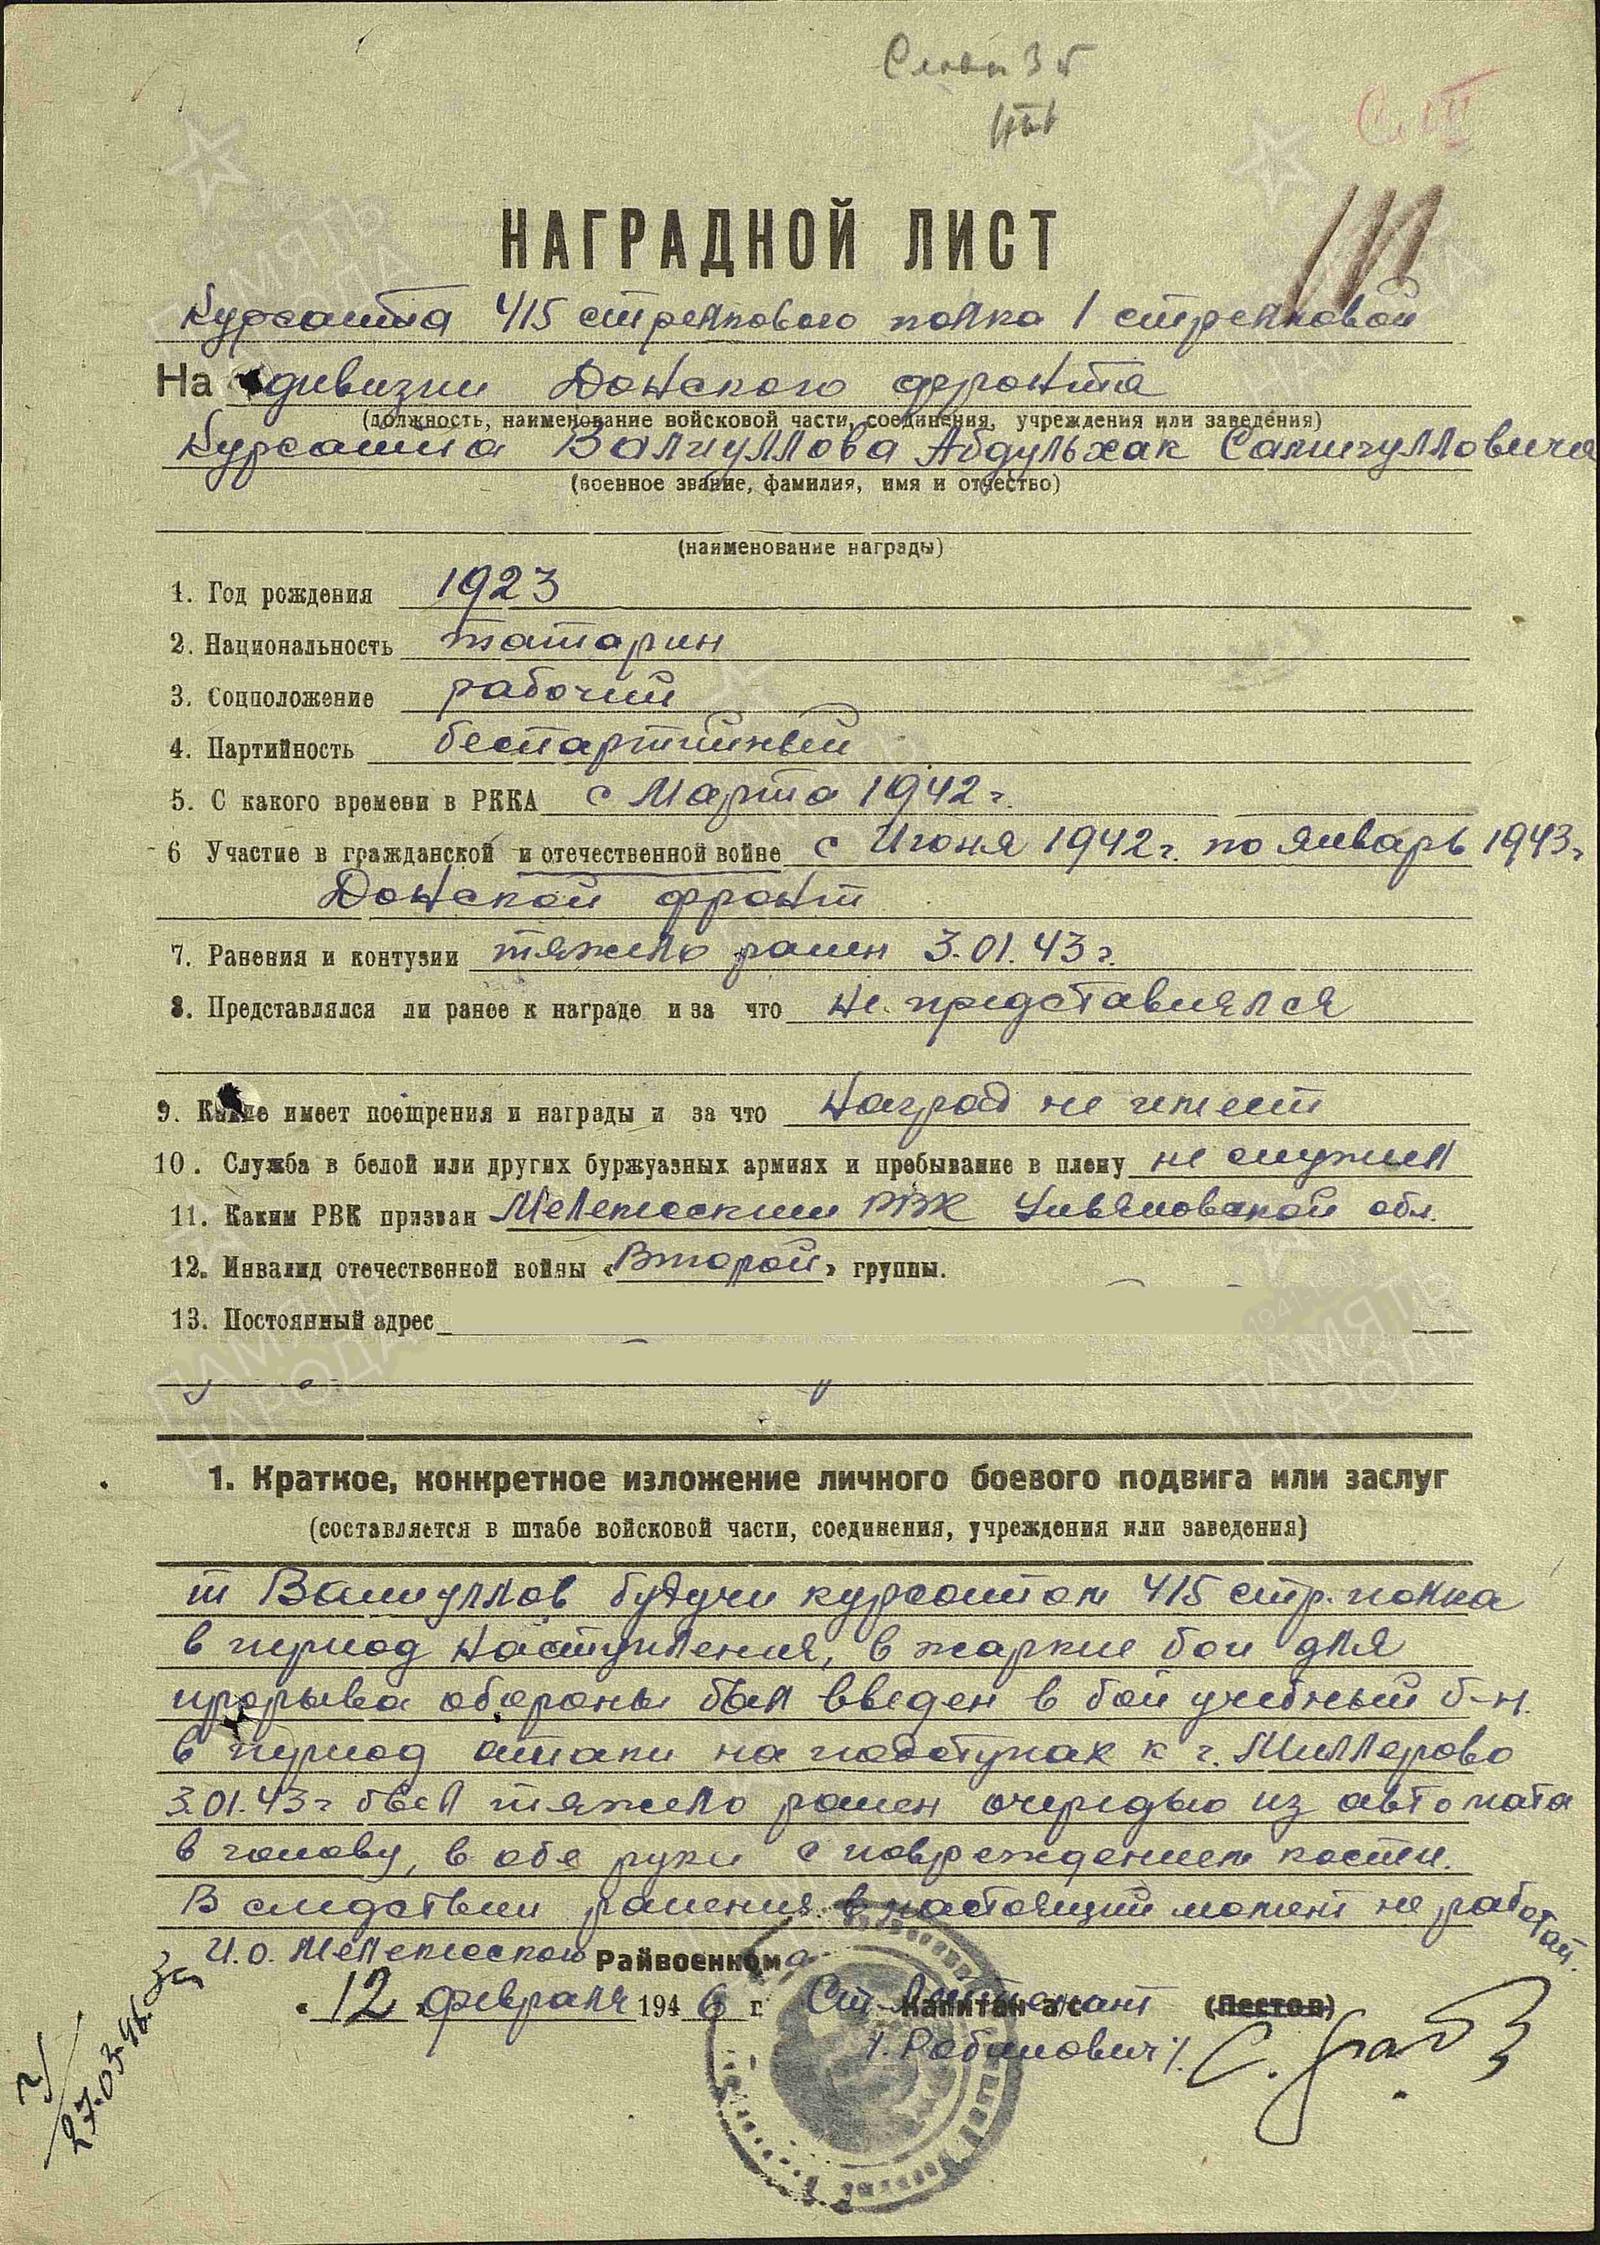 НАГРАДНОЙ ЛИСТ
Курсанта 415 стрелкового полка 1 стрелковой
На дивизии Донского фронта
(должность, наименование войсковой части, соединения, учреждения или заведения)
Курсанта Валиуллова Абдульхак Самигулловича
(военное звание, фамилия, имя и отчество)
(наименование награды)
1. Год рождения 1923
2. Национальность татарин
3. Соцположение рабочий
4. Партийность беспартийный
5. С какого времени в РККА с Марта 1942 г.
6 Участие в гражданской и отечественной войне с Июня 1942 г. по январь 1943 г
Донской фронт
7. Ранения и контузии тяжело ранен 3.01.43 г.
8. Представлялся ли ранее к награде и за что не представлялся
9. Какие имеет поощрения и награды и за что Наград не имеет
10. Служба в белой или других буржуазных армиях и пребывание в плену не служил
11. Каким РВК призван Мелекесским РВК Ульяновской обл.
12. Инвалид отечественной войны «Второй» группы.
13. Постоянный адрес
1. Краткое, конкретное изложение личного боевого подвига или заслуг
(составляется в штабе войсковой части, соединения, учреждения или заведения)
т Валиуллов будучи курсантом 415 стр. полка
в период наступления, в жаркие бои для
прорыва обороны был введен в бой учебный б-н.
в период атаки на подступах к г. Миллерово
3.01.43 г был тяжело ранен очередью из автомата
в голову, в обе руки с повреждением кости.
В следствии ранения в настоящий момент не работает.
И.О. Мелекесского Райвоенкома
"12 февраля 1946 г Ст. Лейтенант Капитан а/с (Пестов)
/. Рабинович /.
27.03.46.
ПАМЯТЬ НАРОДА